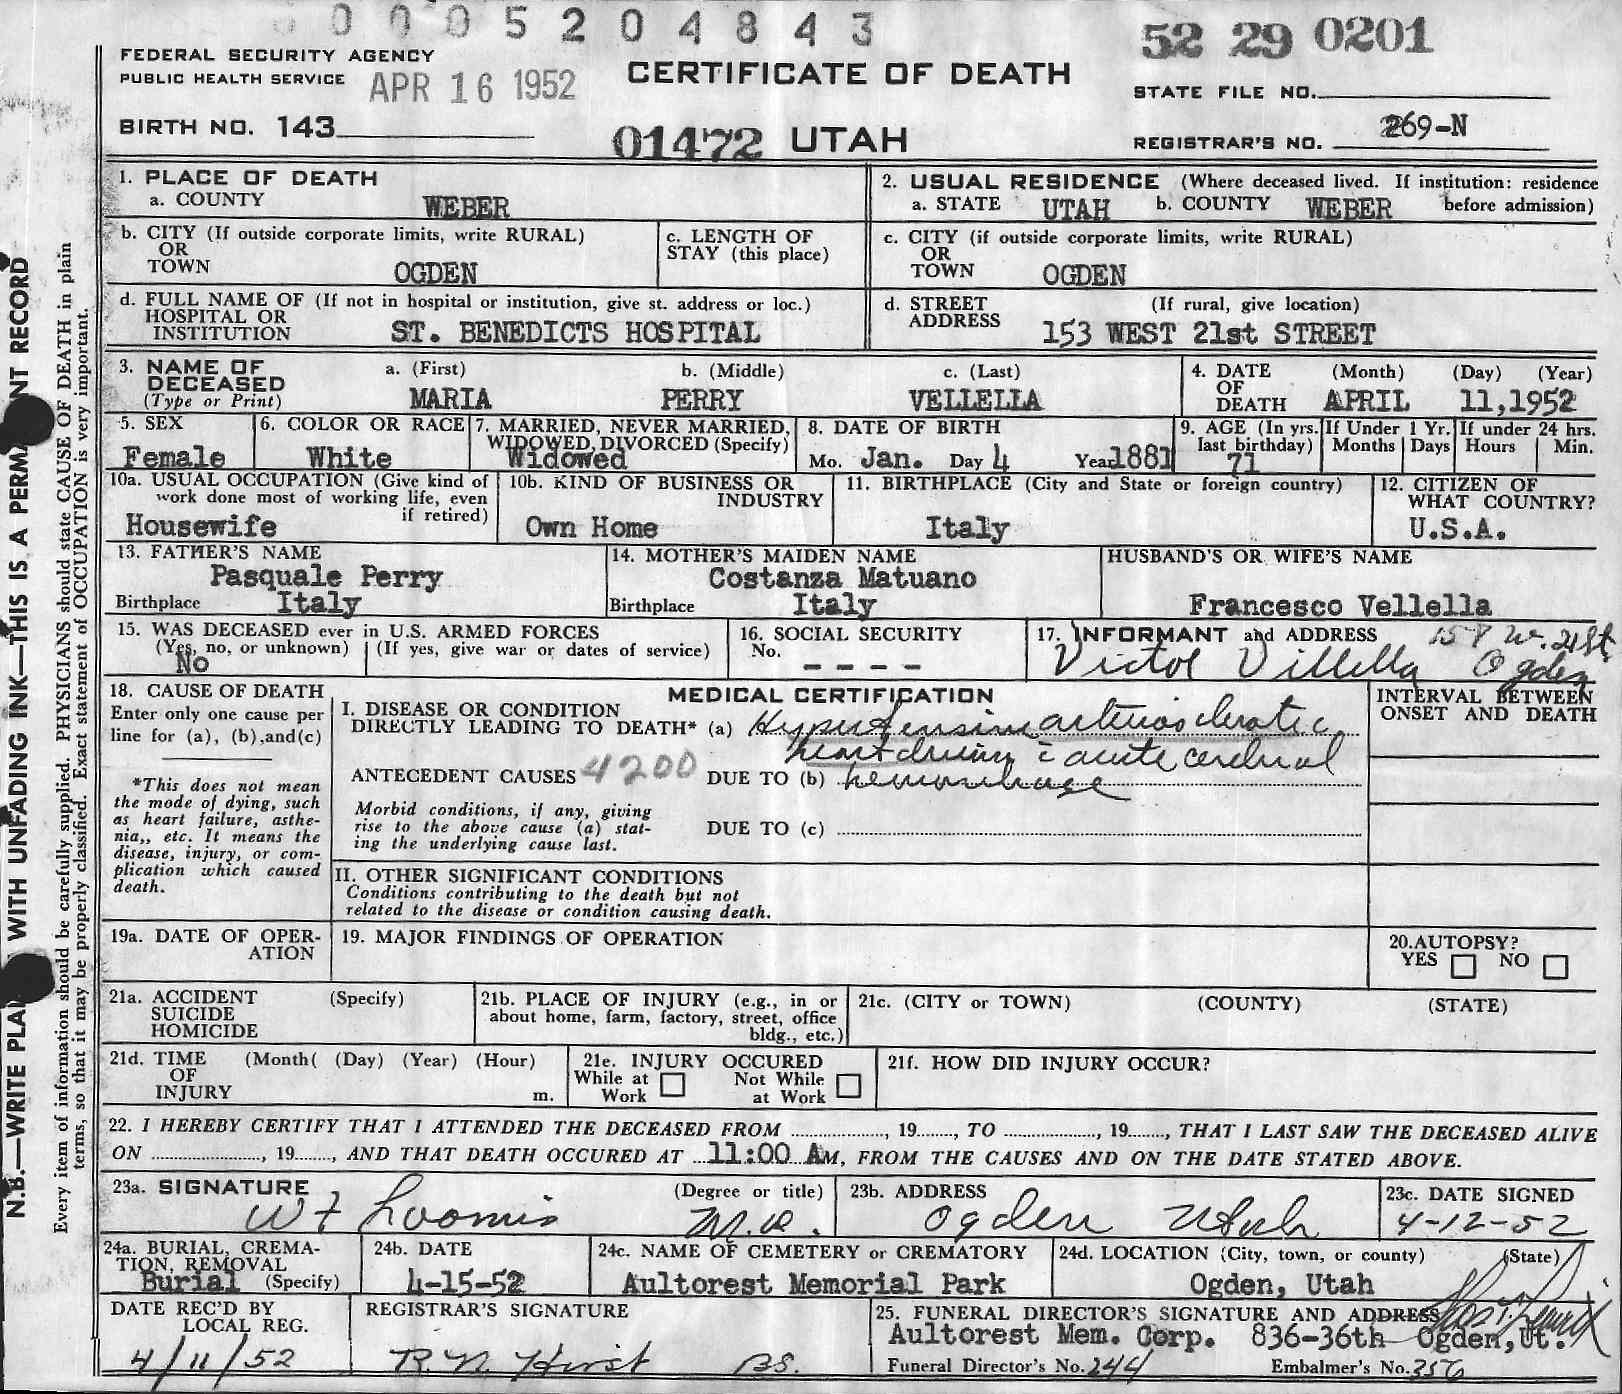 0005204843
52 29 0201
FEDERAL SECURITY AGENCY
PUBLIC HEALTH SERVICE
APR 16 1952
CERTIFICATE OF DEATH
STATE FILE NO.
BIRTH NO. 143
01472 UTAH
REGISTRAR'S NO. 269-N
1. PLACE OF DEATH
a. COUNTY WEBER
2. USUAL RESIDENCE (Where deceased lived. If institution: residence before admission)
a. STATE UTAH b. COUNTY WEBER
b. CITY (If outside corporate limits, write RURAL)
OR
TOWN OGDEN
c. LENGTH OF
STAY (this place)
c. CITY (if outside corporate limits, write RURAL)
OR
TOWN OGDEN
d. FULL NAME OF (If not in hospital or institution, give st. address or loc.)
HOSPITAL OR
INSTITUTION ST. BENEDICTS HOSPITAL
d. STREET (If rural, give location)
ADDRESS 153 WEST 21st STREET
3. NAME OF
DECEASED
(Type or Print)
a. (First) b. (Middle) c. (Last)
MARIA PERRY VELLELLA
4. DATE (Month) (Day) (Year)
OF
DEATH APRIL 11,1952
5. SEX
Female
6. COLOR OR RACE
White
7. MARRIED, NEVER MARRIED,
WIDOWED, DIVORCED (Specify)
Widowed
8. DATE OF BIRTH
Mo. Jan. Day 4 Year 1881
9. AGE (In yrs.
last birthday)
71
If Under 1 Yr.
Months Days
If under 24 hrs.
Hours Min.
10a. USUAL OCCUPATION (Give kind of
work done most of working life, even
if retired)
Housewife
10b. KIND OF BUSINESS OR
INDUSTRY
Own Home
11. BIRTHPLACE (City and State or foreign country)
Italy
12. CITIZEN OF
WHAT COUNTRY?
U.S.A.
13. FATHER'S NAME
Pasquale Perry
Birthplace Italy
14. MOTHER'S MAIDEN NAME
Costanza Matuano
Birthplace Italy
HUSBAND'S OR WIFE'S NAME
Francesco Vellella
15. WAS DECEASED ever in U.S. ARMED FORCES
(Yes, no, or unknown) (If yes, give war or dates of service)
No
16. SOCIAL SECURITY
No. - - - -
17. INFORMANT and ADDRESS W. 21st
Victor Villella Ogden
18. CAUSE OF DEATH
Enter only one cause per
line for (a), (b), and(c)
*This does not mean
the mode of dying, such
as heart failure, asthe-
nia,, etc. It means the
disease, injury, or com-
plication which caused
death.
MEDICAL CERTIFICATION
I. DISEASE OR CONDITION
DIRECTLY LEADING TO DEATH* (a) Hypertension arteriosclerotic
heart disease c̄ acute cerebral
ANTECEDENT CAUSES 4200 DUE TO (b) hemorrhage
Morbid conditions, if any, giving
rise to the above cause (a) stat-
ing the underlying cause last.
DUE TO (c)
INTERVAL BETWEEN
ONSET AND DEATH
II. OTHER SIGNIFICANT CONDITIONS
Conditions contributing to the death but not
related to the disease or condition causing death.
19a. DATE OF OPER-
ATION
19. MAJOR FINDINGS OF OPERATION
20.AUTOPSY?
YES NO
21a. ACCIDENT (Specify)
SUICIDE
HOMICIDE
21b. PLACE OF INJURY (e.g., in or
about home, farm, factory, street, office
bldg., etc.)
21c. (CITY or TOWN) (COUNTY) (STATE)
21d. TIME (Month( (Day) (Year) (Hour)
OF
INJURY m.
21e. INJURY OCCURED
While at Work Not While at Work
21f. HOW DID INJURY OCCUR?
22. I HEREBY CERTIFY THAT I ATTENDED THE DECEASED FROM ............, 19......, TO ............, 19......, THAT I LAST SAW THE DECEASED ALIVE
ON ............, 19......, AND THAT DEATH OCCURED AT 11:00 AM, FROM THE CAUSES AND ON THE DATE STATED ABOVE.
23a. SIGNATURE (Degree or title)
Loomis M.D.
23b. ADDRESS
Ogden Utah
23c. DATE SIGNED
4-12-52
24a. BURIAL, CREMA-
TION, REMOVAL
Burial (Specify)
24b. DATE
4-15-52
24c. NAME OF CEMETERY or CREMATORY
Aultorest Memorial Park
24d. LOCATION (City, town, or county) (State)
Ogden, Utah
DATE REC'D BY
LOCAL REG.
4/11/52
REGISTRAR'S SIGNATURE
R.N. Hirst BS.
25. FUNERAL DIRECTOR'S SIGNATURE AND ADDRESS
Aultorest Mem. Corp. 836-36th Ogden,Ut.
Funeral Director's No. 244 Embalmer's No. 356
N.B.—WRITE WITH UNFADING INK—THIS IS A RECORD
Every item of information should be carefully supplied. PHYSICIANS should state CAUSE OF DEATH in plain
terms, so that it may be properly classified. Exact statement of OCCUPATION is very important.